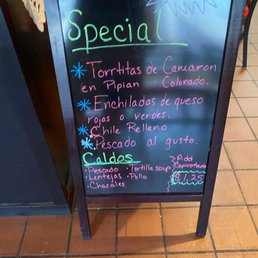 Special
* Torrtitas de Camaron
en Pipian Colorado.
* Enchiladas de queso
rojas o verdes.
* Chile Relleno.
* Pescado al gusto.
Caldos
• Pescado • Tortilla soup
• Lentejas • Pollo
• Chacales
> Add
Capirotada
$1.25